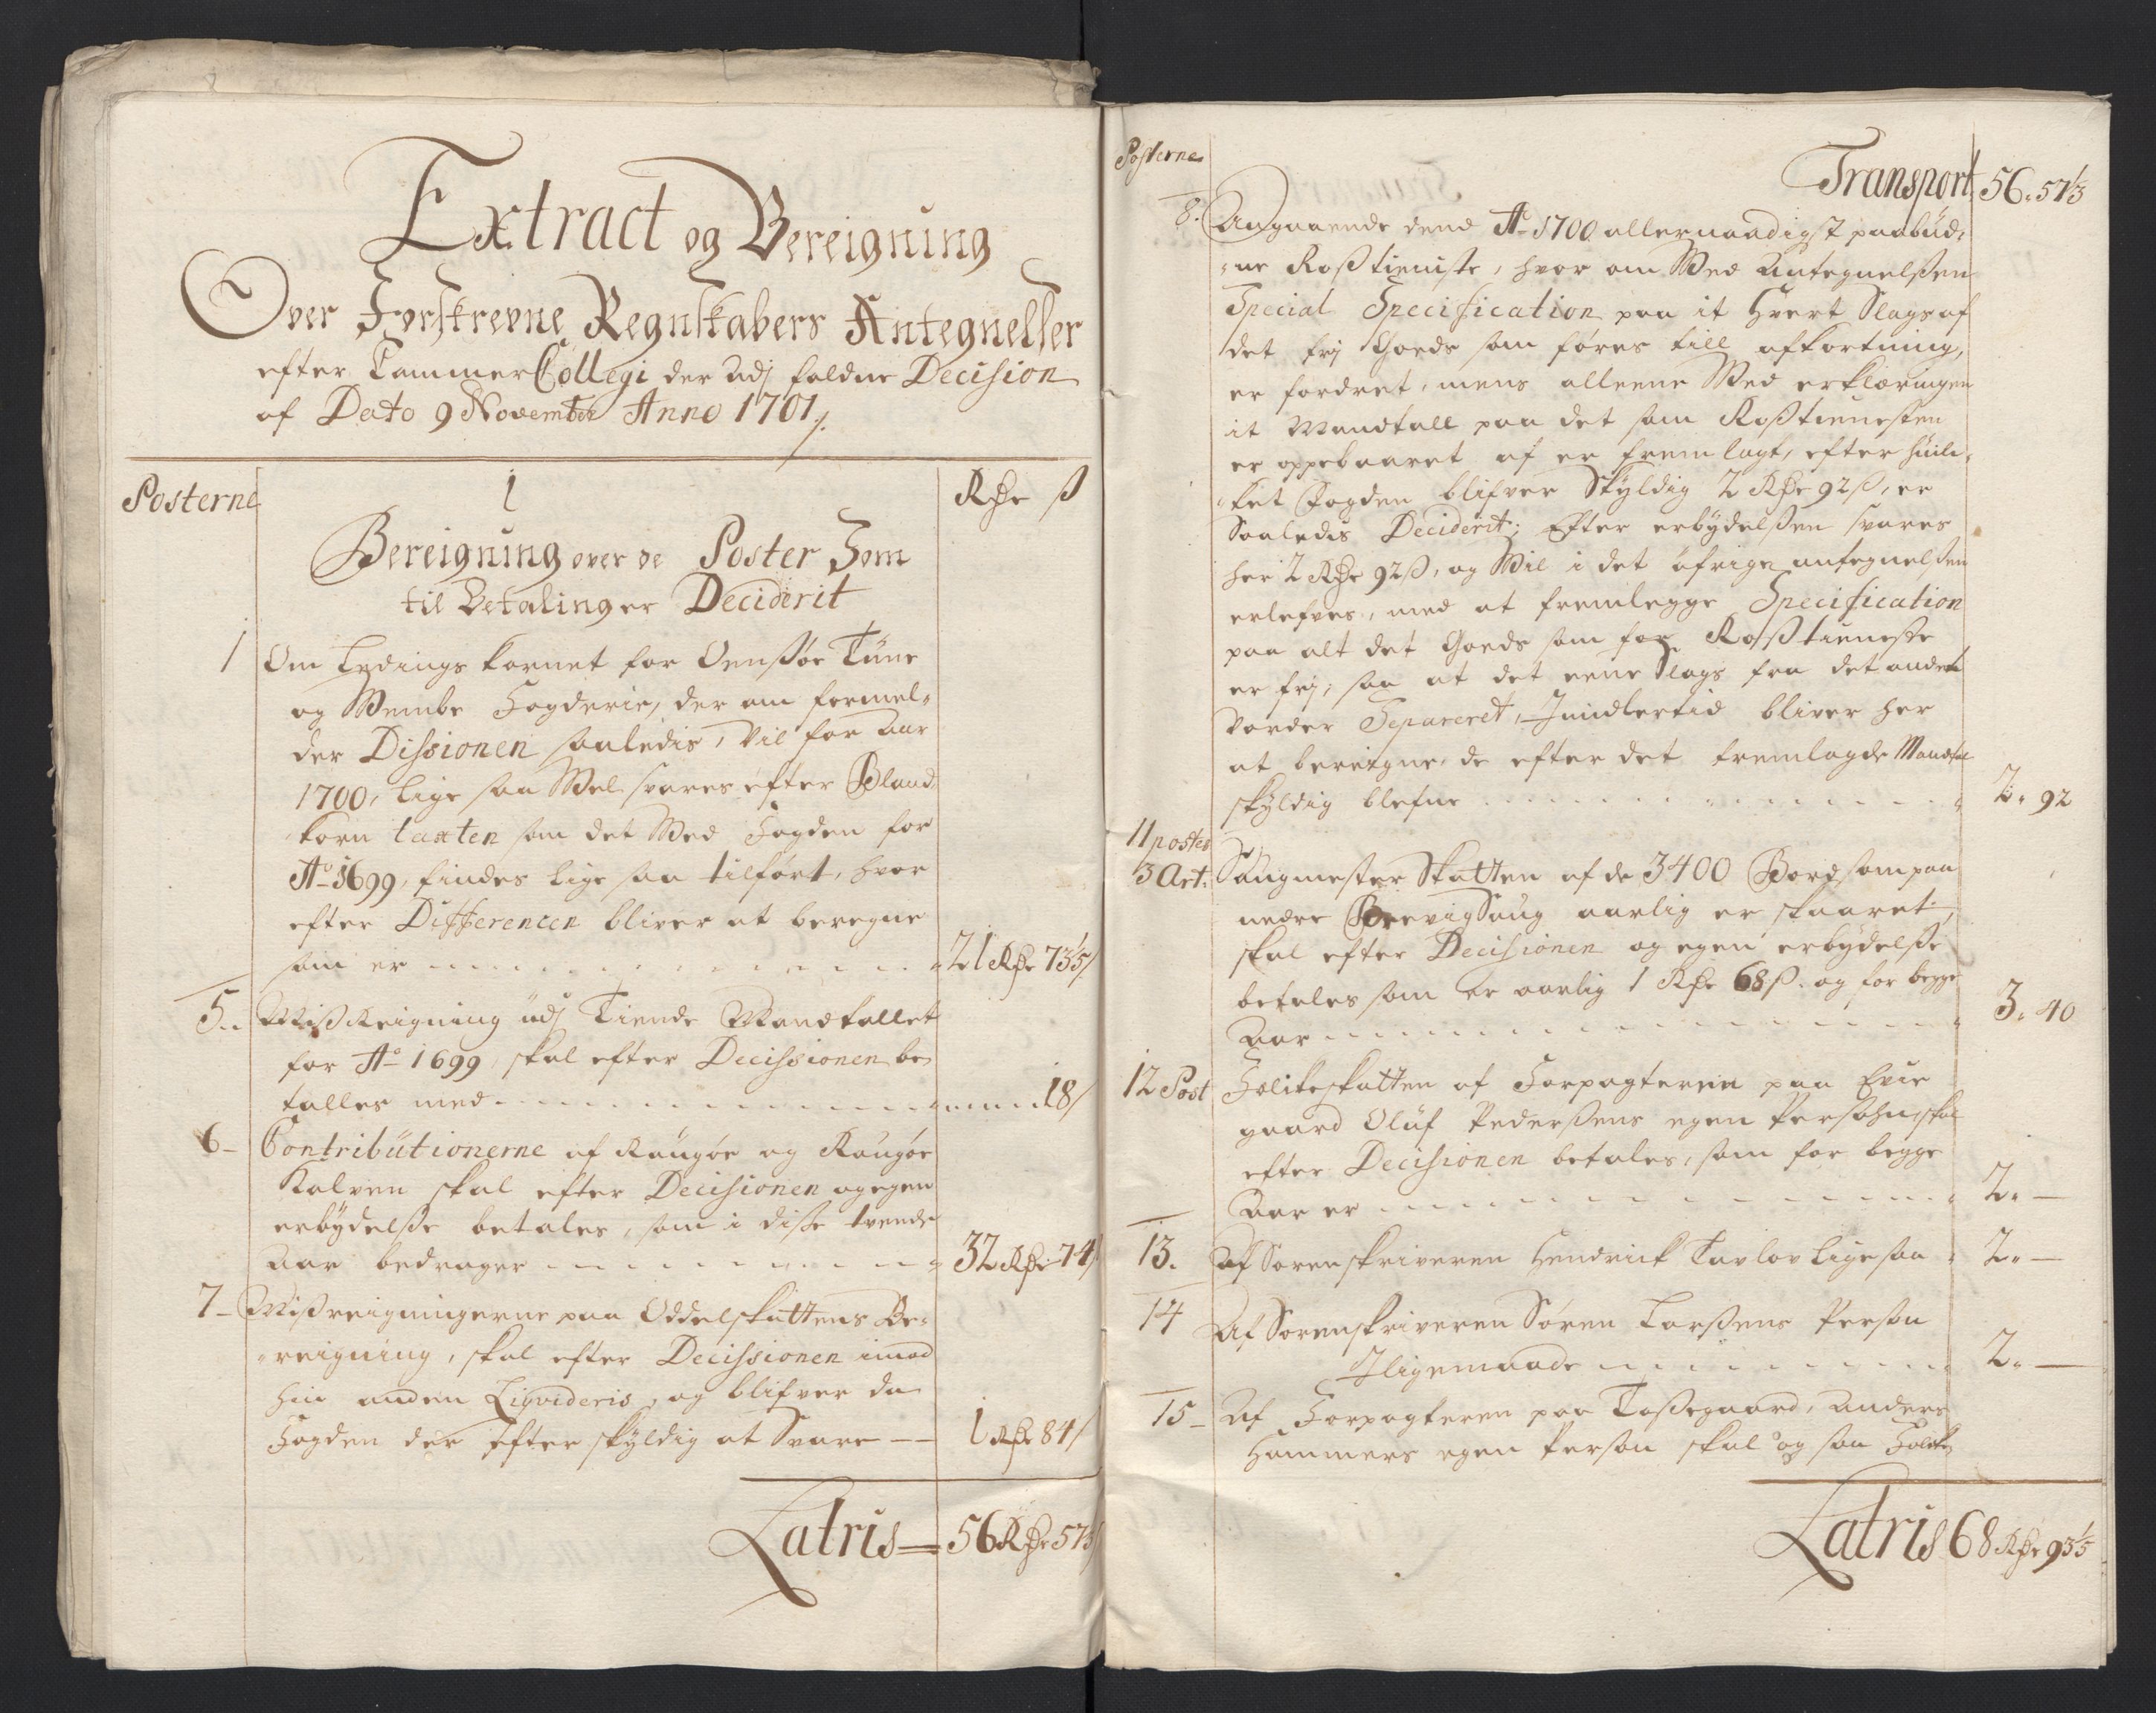 Extract og Bereigning
Over Forskrevne Regnskabers Antegnelser
efter Cammer Collegi der udj faldne Decision
af Dato 9 November Anno 1701/.
Posterne
1
Rdr ß
Bereigning over de Poster Som
til Betaling er Deciderit
1 Om Ledings kornet for Onssøe Tune
og Wembe Fogderie, der om formel-
der Dissionen saaledis, Vil for Aar
1700, lige saa Wel svares efter Bland
korn taxten som det Med Fogden for
Ao 1699, findes lige saa tilført, hvor
efter Differencen bliver at beregne
som er 21 Rdr 73⅕/
5. Misreigning udj Tiende Mandtallet
for Ao 1699, skal efter Decissionen be-
talles med 18/
6 Contributionerne af Raugøe og Raugøe
Kalven skal efter Decisionen og egen
erbydelße betales, som i diße tvende
Aar bedrager 32 Rdr 74/
7 Misreigningerne paa Oddelskattens Be-
reigning, skal efter Decissionen imod
hin anden Liqvideris, og blifver da
Fogden der efter skyldig at Svare 1 Rdr 84/
Latris 56 Rdr 57⅓/
Posterne
Transport 56. 57⅓
8. Angaaende dend Ao 1700 allernaadigst paabud-
ne Roßtieniste, hvor om Med Antegnelßen
Special Specification paa it hvert Slags af
det frj Goeds som føres till afkortning,
er fordret, mens alleene Med erklæringen
it Mandtall paa det som Roßtienesten
er oppebaaret af er fremlagt, efter huil-
ket Fogden blifver Skyldig 2 Rdr 92ß, er
Saaledis Deciderit; Efter erbydelßen svares
her 2 Rdr 92ß, og Vil i det øfrige antegnelßen
erlefves, med at fremlegge Specification
paa alt det Goeds som for Roßtieneste
er frj, saa at det eene Slags fra det andet
vorder Separeret, Imidlertid bliver her
at bereigne, de efter det fremlagde Mandtal
skyldig blefne 2. 92
11 postes
3 Art. Saugmester Skatten af de 3400 Bord som paa
nedre Brevig Saug aarlig er skaaret,
skal efter Decisionen og egen erbydelße
betales som er aarlig 1 Rdr 68ß. og for begge
Aar 3. 40
12 Post Folkeskatten af Forpagteren paa Evie
gaard Oluf Pederßens egen Persohn, skal
efter Decisionen betales, som for begge
Aar er 2. —
13. Af Sorenskriveren Hendrick Tavlov ligesaa 2. —
14 Af Sorenskriveren Søren Larßens Person
Iligemaade 2. —
15 Af Forpagteren paa Toßegaard, Anders
Hammers egen Person skal og saa Folke
Latris 68 Rdr 93⅓